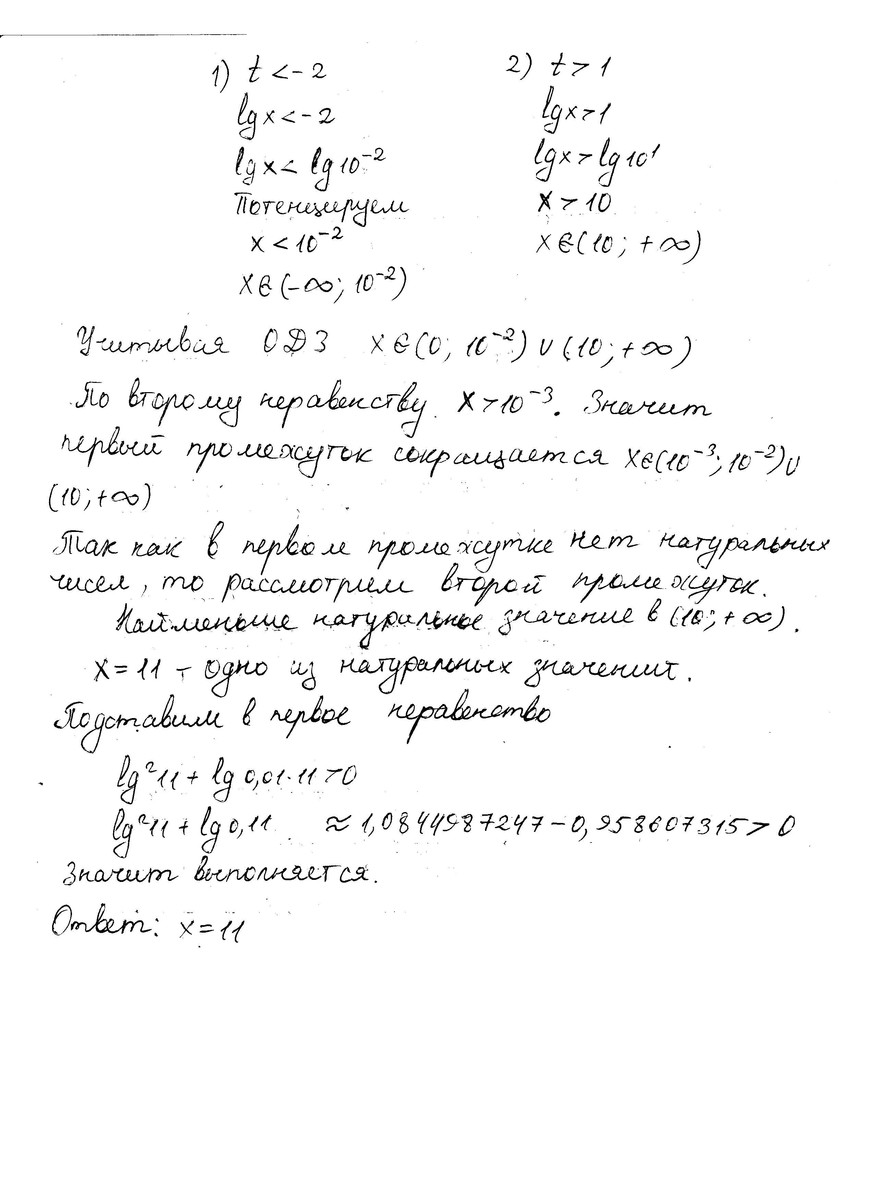 1) t < -2
lg x < -2
lg x < lg 10⁻²
Потенцируем
x < 10⁻²
x ∈ (-∞; 10⁻²)
2) t > 1
lg x > 1
lg x > lg 10¹
x > 10
x ∈ (10; +∞)
Учитывая ОДЗ x ∈ (0; 10⁻²) ∪ (10; +∞)
По второму неравенству x > 10⁻³. Значит
первый промежуток сокращается x ∈ (10⁻³; 10⁻²) ∪
(10; +∞)
Так как в первом промежутке нет натуральных
чисел, то рассмотрим второй промежуток.
Найменьше натуральное значение в (10; +∞).
x = 11 – одно из натуральных значений.
Подставим в первое неравенство
lg²11 + lg 0,01·11 > 0
lg²11 + lg 0,11 ≈ 1,0844987247 – 0,958607315 > 0
Значит выполняется.
Ответ: x = 11